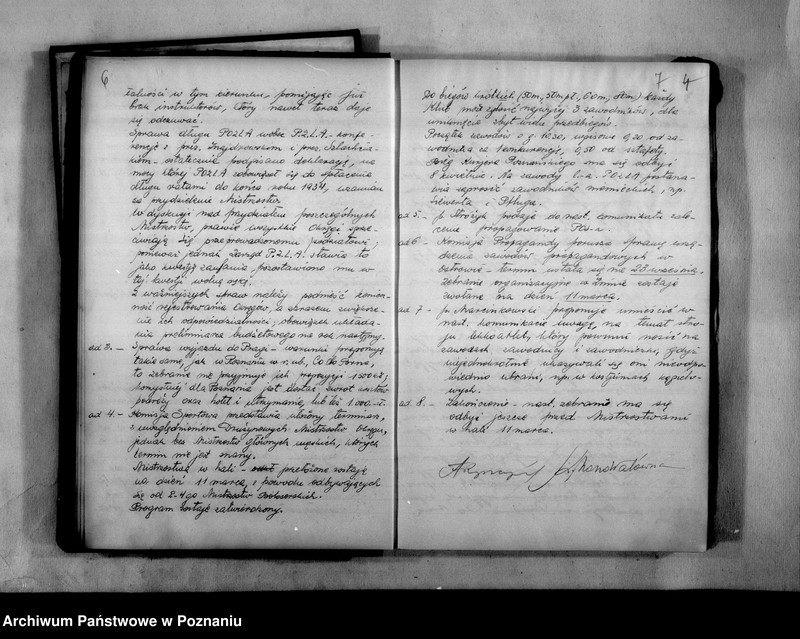 6
łalności w tym kierunku, pomijając już
brak instruktorów, który nawet teraz daje
się odczuwać.
Sprawa długu POZLA wobec P.Z.L.A. - konfe-
rencje z prez. Znajdowskim i prez. Szlachci-
kiem - ostatecznie podpisano deklarację, na
mocy której POZLA zobowiązał się do spłacenia
długu ratami do końca roku 1934, wzamian
za przydzielenie Mistrzostw.
W dyskusji nad przydziałem poszczególnych
Mistrzostw, prawie wszystkie Okręgi sprze-
ciwiają się przeprowadzonemu podziałowi;
ponieważ jednak zarząd P.Z.L.A. stawia to
jako kwestję zaufania pozostawiono mu w
tej kwestji wolną rękę.
Z ważniejszych spraw należy podnieść koniecz-
ność rejestrowania Okręgów, a
ich odpowiedzialności; obowiązek układa-
nia preliminarza budżetowego na rok następny.
ad 3. - Sprawa wyjazdu do Pragi - warunki proponują
takie same, jak w Poznaniu w r. ub. Co do Brna,
to zebranie nie przyjmuje ich propozycji 1500 zł,
dla Poznania jest dostać zwrot kosztów
podróży oraz hotel i utrzymanie, lub też 1.000 zł.
ad 4. - Komisja Sportowa przedstawia ułożony terminarz,
z uwzględnieniem Drużynowych Mistrzostw Okręgu,
jednak bez Mistrzostw głównych męskich, których
termin nie jest znany.
Mistrzostwa w hali - przełożone zostają
na dzień 11 marca, z powodu odbywających
się od 2-4 go Mistrzostw Bokserskich.
Program zostaje zatwierdzony.
7 4
Do biegów krótkich (50m, 50m pł, 60m, 80m) każdy
Klub może zgłosić najwyżej 3 zawodników, dla
uniknięcia zbyt wielu przedbiegów.
Początek zawodów o g. 10,30, wpisowe 0,20 od za-
wodnika za 1 konkurencję, 0,50 od sztafety.
Bieg Kurjera Poznańskiego ma się odbyć
8 kwietnia. Na zawody POZLA postana-
wia zaprosić zawodników niemieckich, np.
Sieverta i Pfluga.
ad 5. - p. Stróżyk podaje do nast. komunikatu zale-
cenie propagowania POS-u.
ad 6 - Komisja Propagandy porusza sprawę urzą-
dzenia zawodów propagandowych w
Ostrowie - termin ustala się na 23 września,
Zebranie organizacyjne w Żninie zostaje
zwołane na dzień 11 marca.
ad 7 - p. Marcinkowski proponuje umieścić w
nast. komunikacie uwagę, na temat stro-
ju lekkoatlet., który powinni nosić na
zawodach zawodnicy i zawodniczki, gdyż
niejednokrotnie ukazywali się oni nieodpo-
wiednio ubrani, np. w kostjumach kąpielo-
wych.
ad. 8. - Zakończenie - nast. zebranie ma się
odbyć jeszcze przed Mistrzostwami
w hali 11 marca.
Archiwum Państwowe w Poznaniu